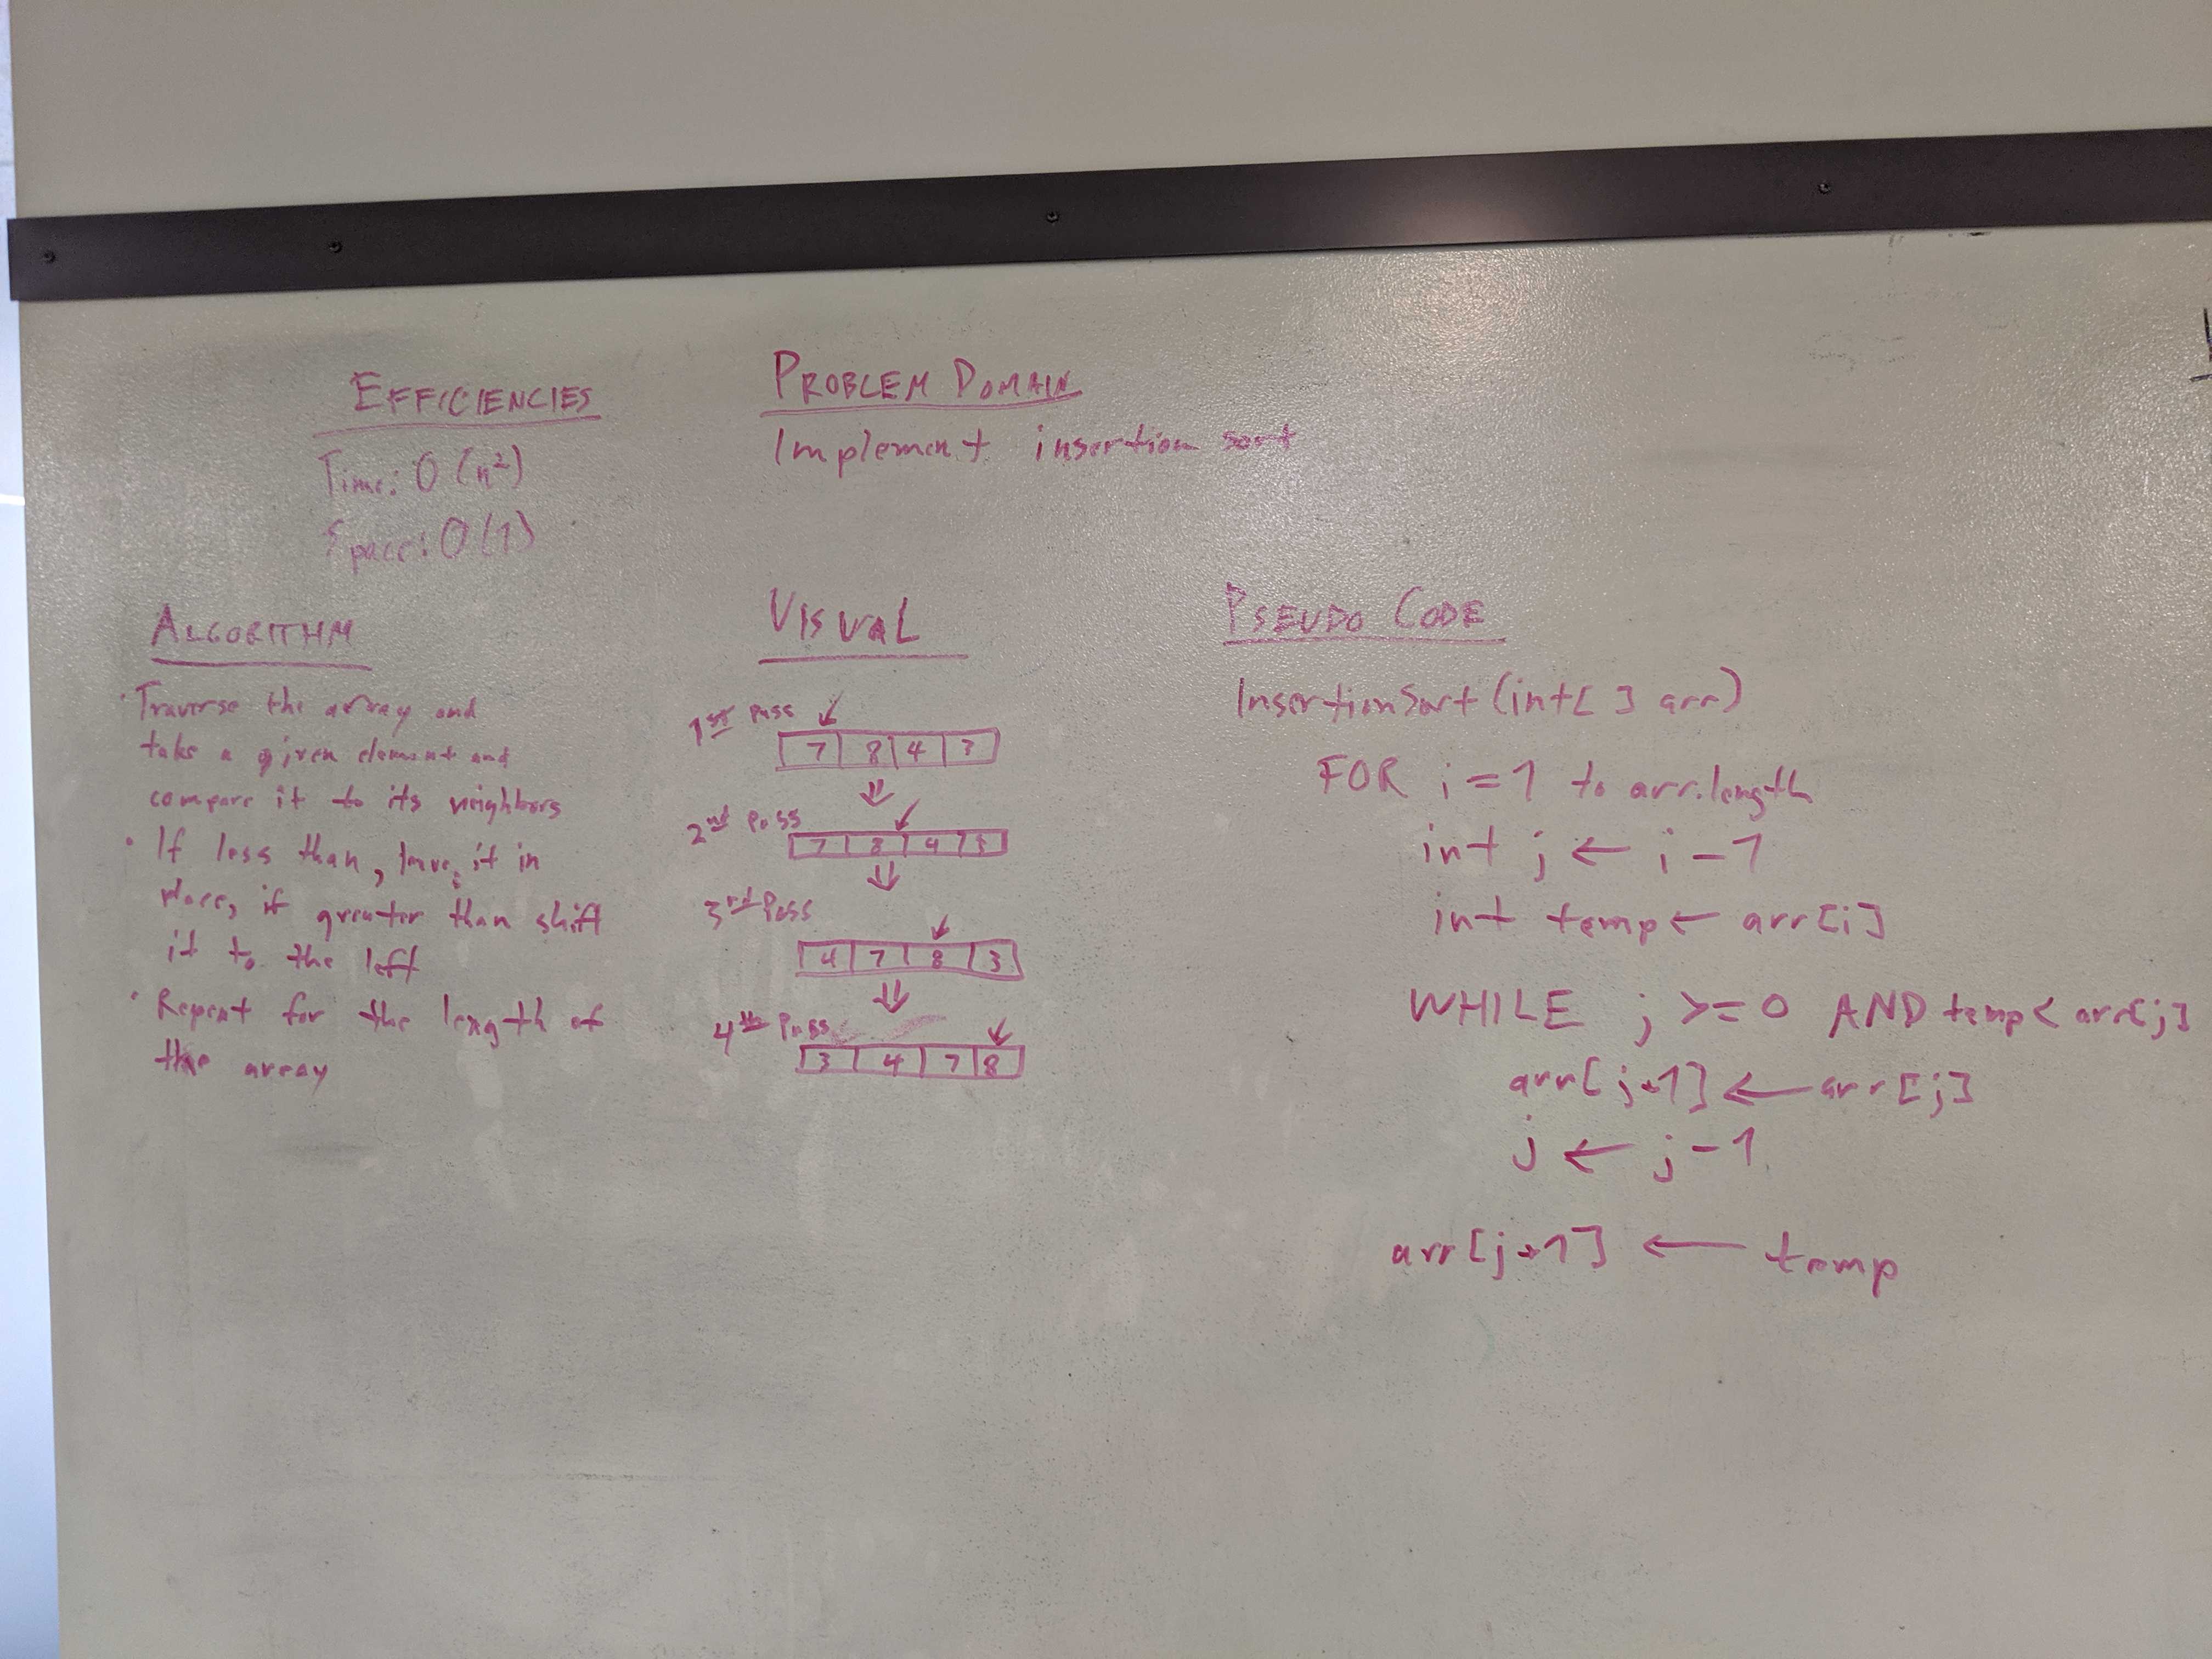 EFFICIENCIES
Time: O(n²)
Space: O(1)
PROBLEM DOMAIN
Implement insertion sort
ALGORITHM
· Traverse the array and
take a given element and
compare it to its neighbors
· If less than, leave it in
place, if greater than shift
it to the left
· Repeat for the length of
the array
VISUAL
1st Pass
7 8 4 3
2nd Pass
7 8 4 3
3rd Pass
4 7 8 3
4th Pass
3 4 7 8
PSEUDO CODE
InsertionSort(int[] arr)
FOR i = 1 to arr.length
int j ← i - 1
int temp ← arr[i]
WHILE j >= 0 AND temp < arr[j]
arr[j+1] ← arr[j]
j ← j - 1
arr[j+1] ← temp